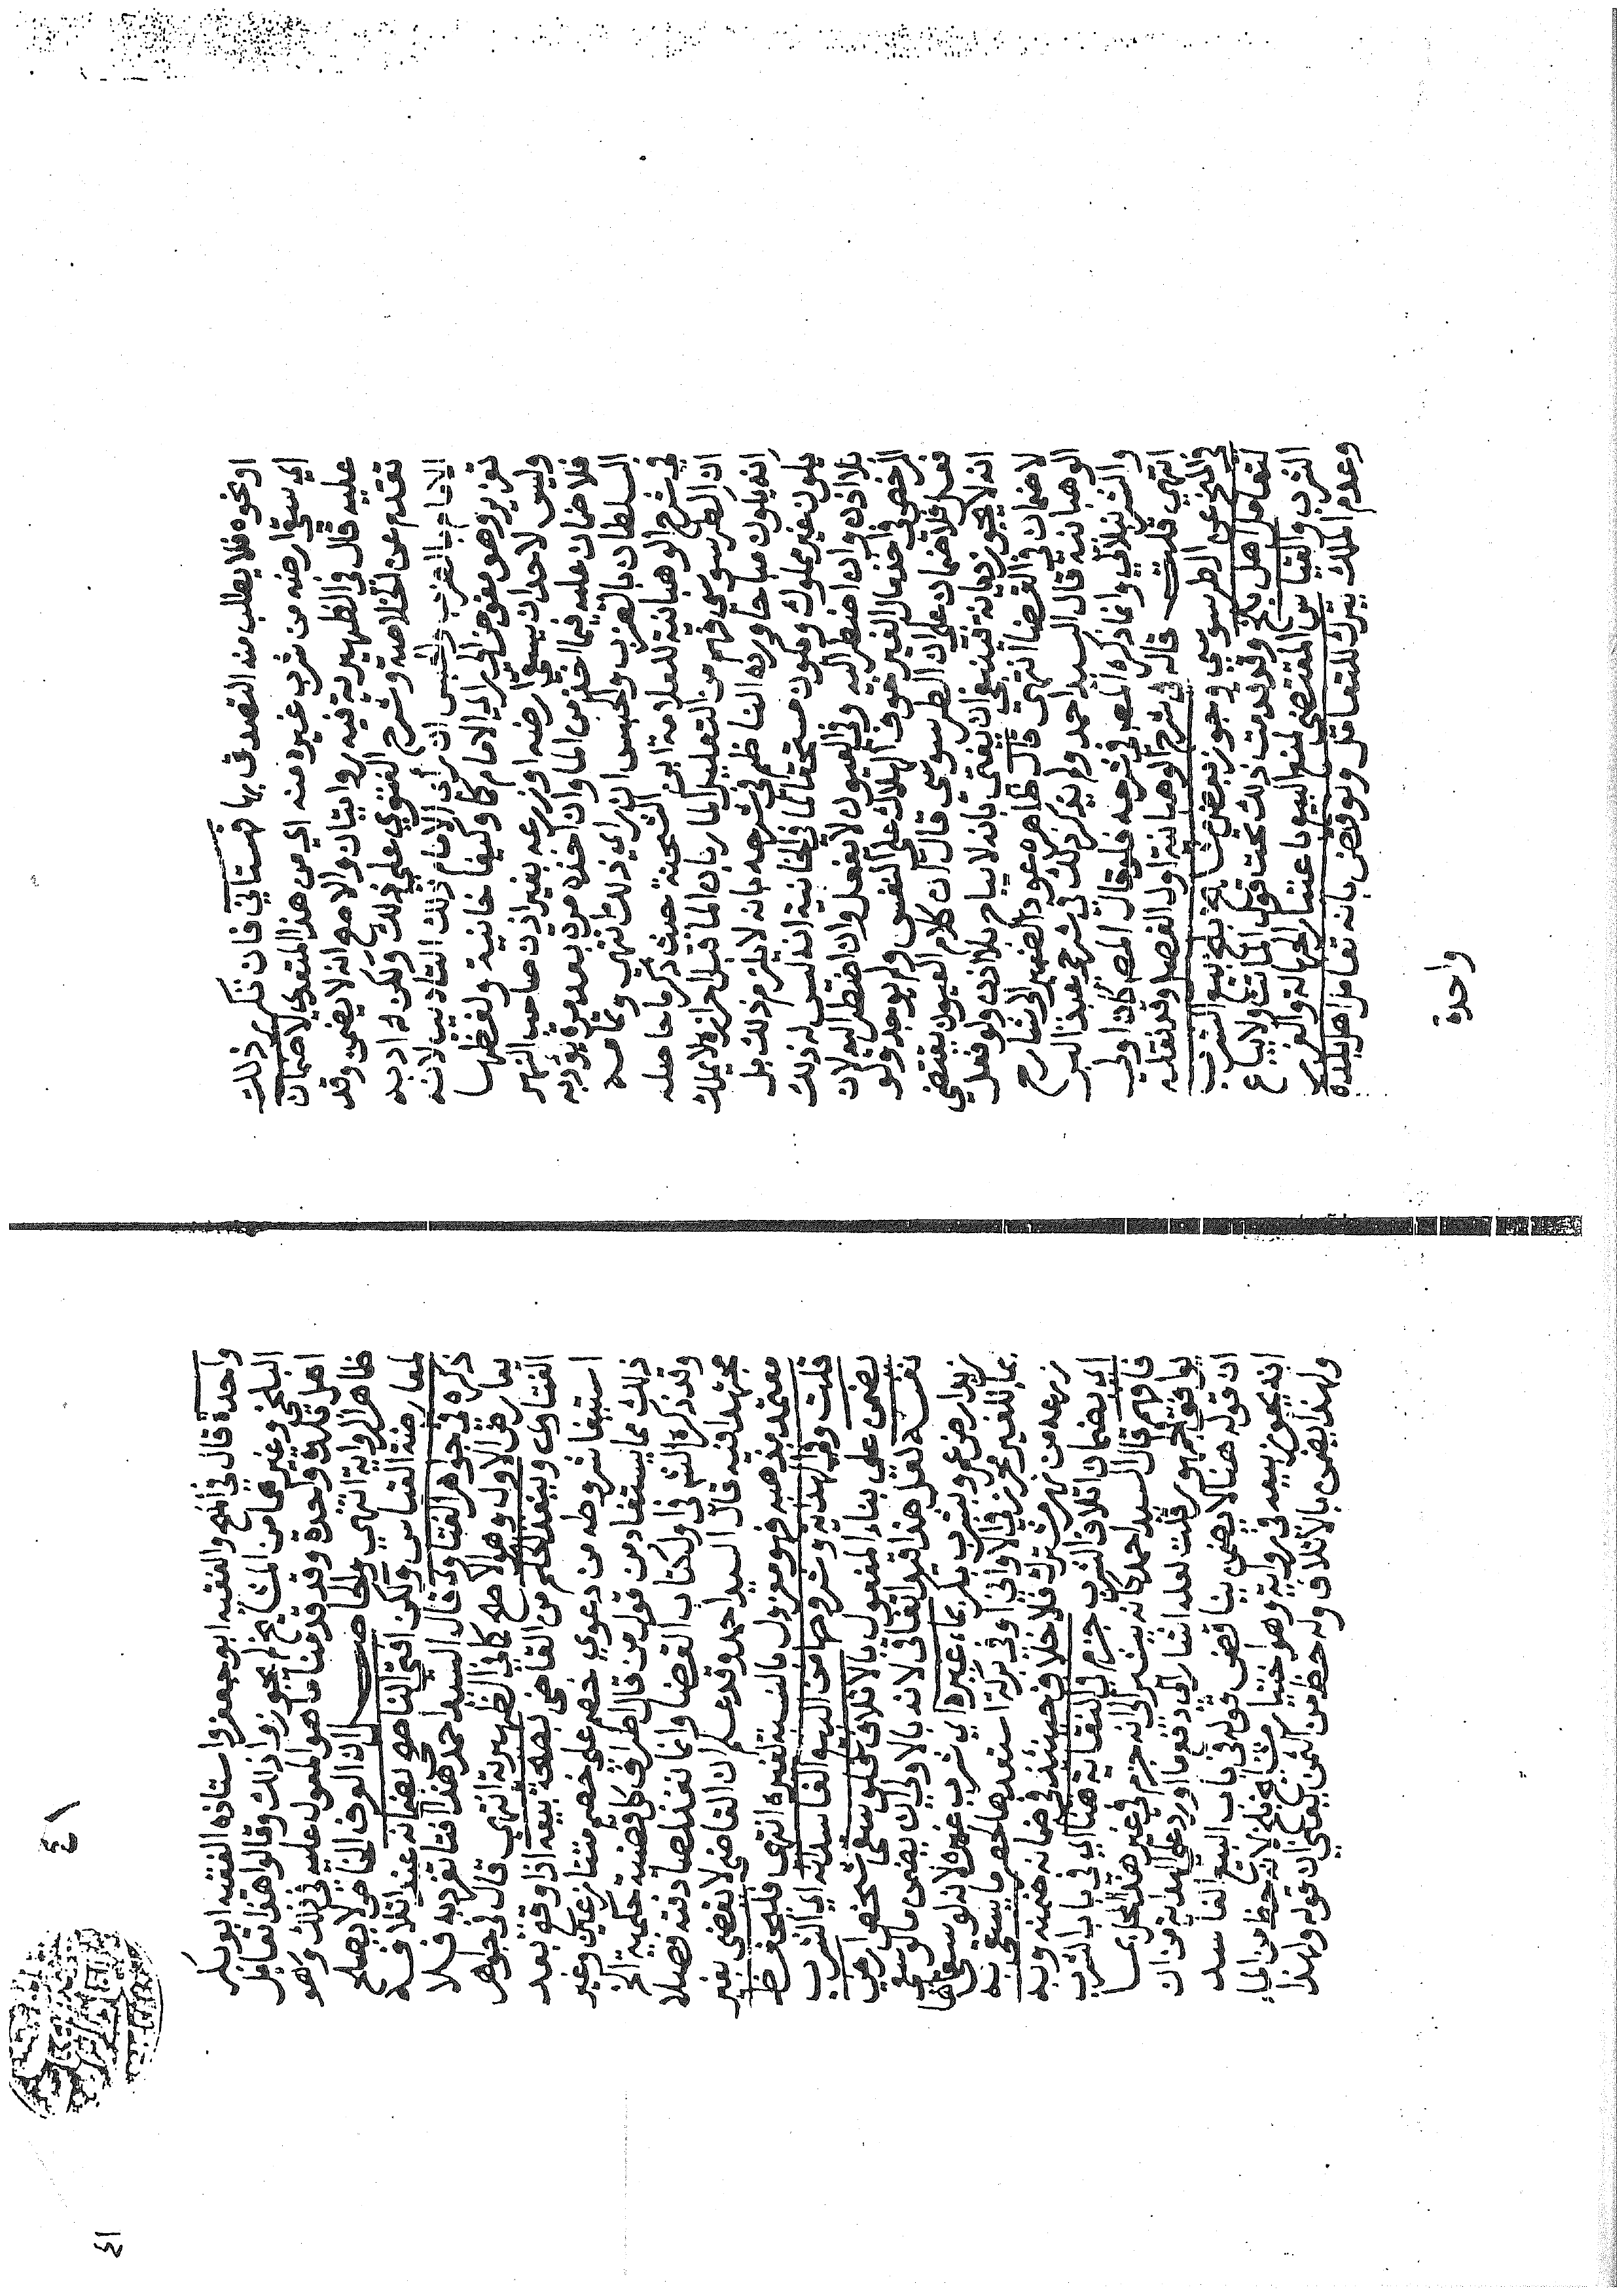 او نحوه فلا يطلب منه التصدق بها قهستاني فان تكرر ذلك
اي سقى ارضه من شرب غيره منه اي من هذا المتعدي لا ضمان
عليه قال في الظهيرية فيه روايتان والاصح انه لا يضمن وقد
تقدم عن الخلاصة وشرح الفتوي علي ذلك ولكن له ادبه
الامام بالضرب والحبس ان رأى الامام ذلك التاديب لانه
تعزير وهو مفوض الي راي الامام كما وكيفا خانية ولفظها
وليس لاحد ان يسقي ارضه او زرعه بغير اذن صاحب النهر
فلا ضمان عليه فيما اخذ من الماء وان اخذه مرة بعد مرة يؤدبه
السلطان بالضرب والحبس ان راي ذلك انتهي وتمامه
في شرح الوهبانية للعلامة ابن الشحنة حيث ذكر ما حاصله
ان الطرسوسي فهم من التعليل المار بان الماء قبل احرازه لا يملك
انه يكون مباحا ورده الناظم في شرحه بانه لا يلزم ذلك بل
يكون غير مملوك ويكون مستحقا لما في الخانية انه ليس له ذلك
بلا اذن وان اضطر اليه وفي العيون لا يفعل وان اضطر اليه لان
الرخصة في اخذ مال الغير خوف الهلاك علي النفس ولم يوجد ولو
فعل فلا ضمان علي ان الطرسوسي قال ان كلام العيون يقتضي
انه لا يجوز ديانة فينبغي ان يفتي بانه لا يباح بلا اذن ولو فعل
لا ضمان في القضا انتهي قال ظاهره عود الضمير الى شارح
الوهبانية قال السيد احمد ولم يذكر ذلك في شرحه عبد البر
والشرنبلالي وانما ذكره المص في شرحه فلو قال المص كان اولي
انتهي قلت قاله في شرح الوهبانية اول الفصل وقد نقله
في المنح عن الطرسوسي وجوز بعض مشايخ بلخ بيع الشرب
لتعامل اهل بلخ وقد قدمت ذلك تحت قول الماتن ولا يباع
الشرب والقياس المقتضي لمنع البيع باعتبار الجهالة والغرر
وعدم الملك يترك للتعامل ونوقض بانه تعامل اهل بلدة
واحدة
٤١
واحدة قال في المنح والفقيه ابو جعفر واستاذه الفقيه ابو بكر
البلخي وغيرهما من المشايخ لم يجوزوا ذلك وقالوا هذا تعامل
اهل بلدة واحدة وقد قدمنا ما هو المعول عليه في ذلك وهو
ظاهر الرواية انتهي والحاصل ان العرف الخاص لا يصلح
لمعارضة القياس ولكن افتي الناصحي بضمانه عند اتلافه
ذكره في جواهر الفتاوى قال السيد احمد هذا افتا تفرد به فلا
يعارض الاول وهو الاصح كما في الظهيرية انتهي قال في جواهر
الفتاوى وينفذ الحكم من القاضي بصحة بيعه اذا وقع بعد
استيفا شروطه من دعوي خصم علي خصم متنازعين وغير
ذلك مما يستفاد من قول من قال اطراف كل قضية حكمية الخ
وقد ذكره الش في اول كتاب القضا وانما نفذ لمصادفته فصلا
مجتهدا فيه قال السيد احمد وقد علم ان القاضي لا يقضي بغير
معتمد مذهبه فهو معزول بالنسبة لغيره انتهى فليحفظ
قلت وفي الهداية وشروحها من البيع الفاسد انه اي الشرب
يضمن علي بناء المفعول بالاتلاف فلو سقى شخص ارض
نفسه لعل هذا قيد اتفاقي لانه بالاولي ان يضمن ما لو سقى
زيد ارض عمرو بشرب بكر بماء غيره اي شرب غيره لانه لو سقاها
بماء للغير محرز في الاواني او في بركة استعدها لحصر ما يسقى به
زرعه من نهر مشترك فلا خلاف حينئذ في ضمانه ضمنه وبه
اي بضمان اتلاف الشرب جزم في النقاية هنا اي في باب الشرب
فافهم قال السيد احمد كانه يشير الي انه جزم في غير هذا المحل بما
يوافق الجمهور قلت لعله اشار الى دفع ما اورد علي الهداية من ان
ان قوله هنا لا يضمن يناقض قوله في باب البيع الفاسد
انه يجوز بيعه في رواية وهو اختيار مشايخ بلخ لانه حظ من الماء
ولهذا يضمن بالاتلاف وله حظ من الثمن يعني ان قوله ولهذا
٤١